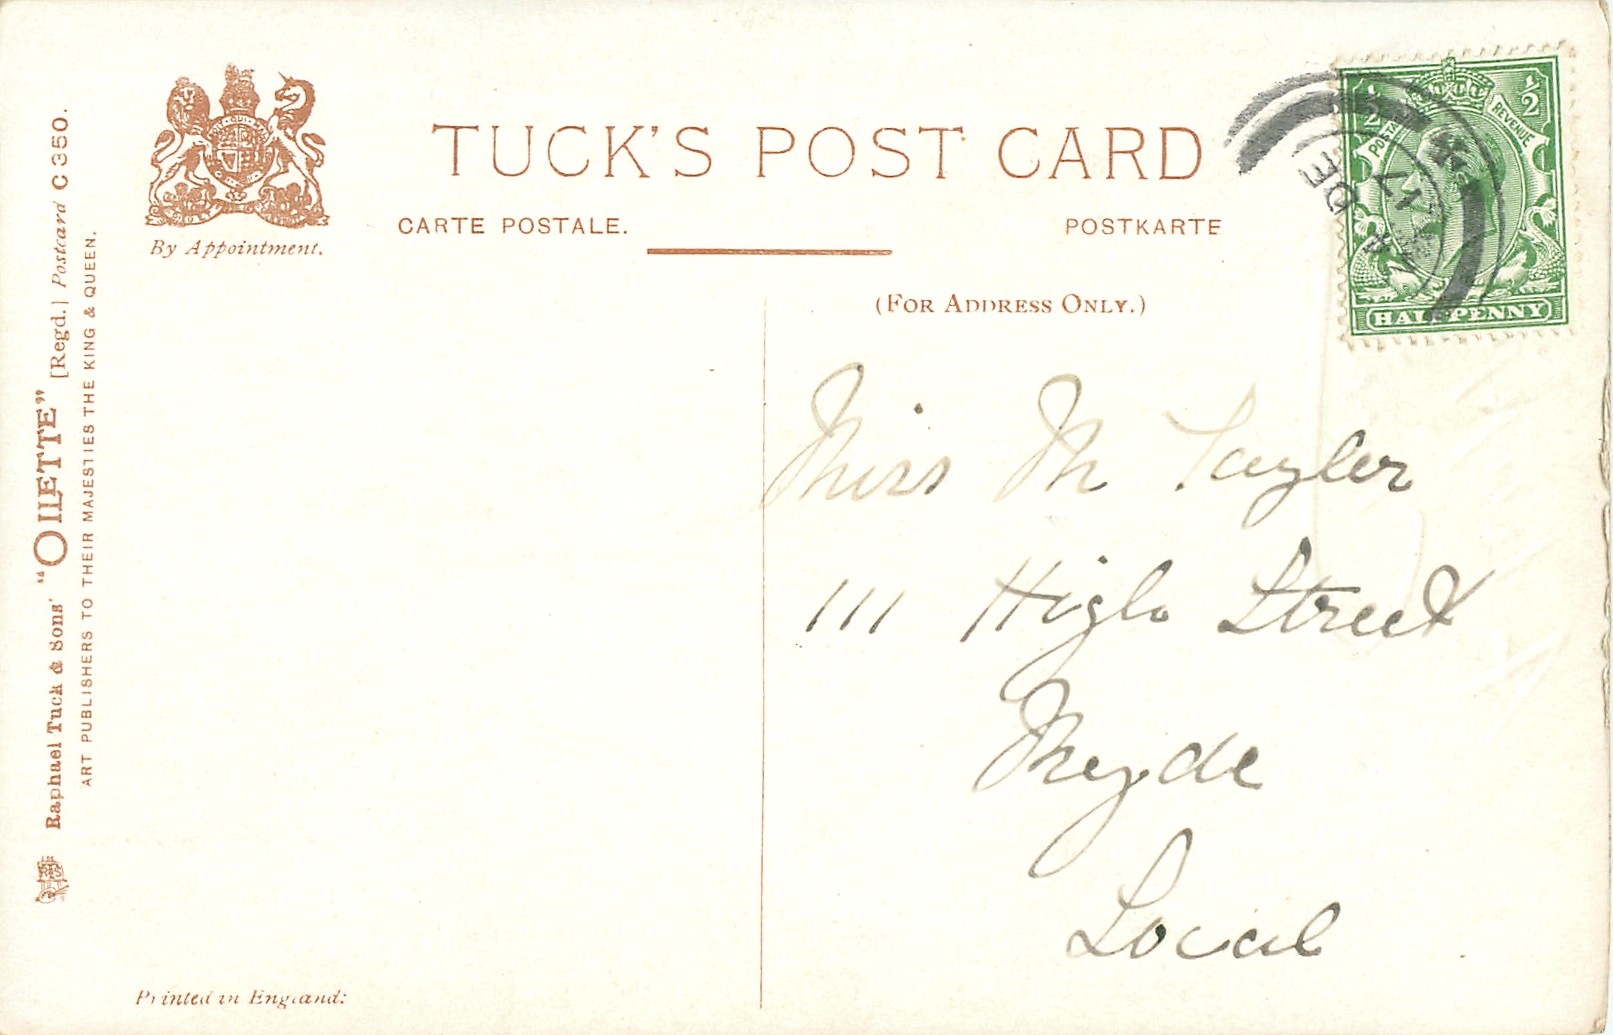 TUCK'S POST CARD
CARTE POSTALE.
POSTKARTE
By Appointment.
(FOR ADDRESS ONLY.)
Raphael Tuck & Sons' "OILETTE" [Regd.] Postcard C 350.
ART PUBLISHERS TO THEIR MAJESTIES THE KING & QUEEN.
Printed in England:
½ ½
POSTAGE REVENUE
HALFPENNY
DE
17
Miss M Tayler
111 High Street
Ryde
Local